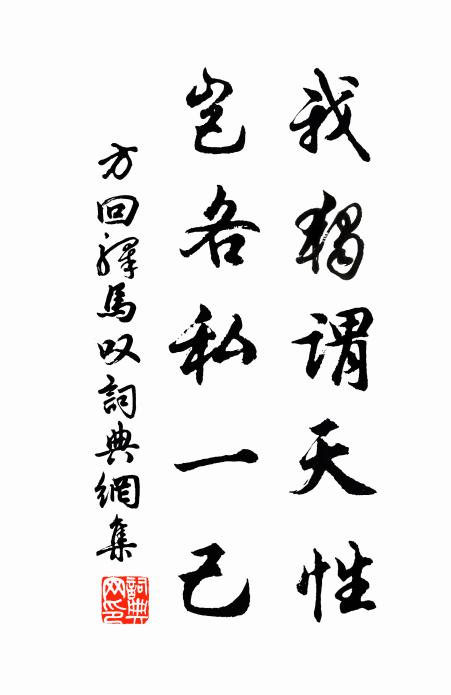 我獨謂天性
豈各私一己
方回驛馬叹詞典網集
詞典網印